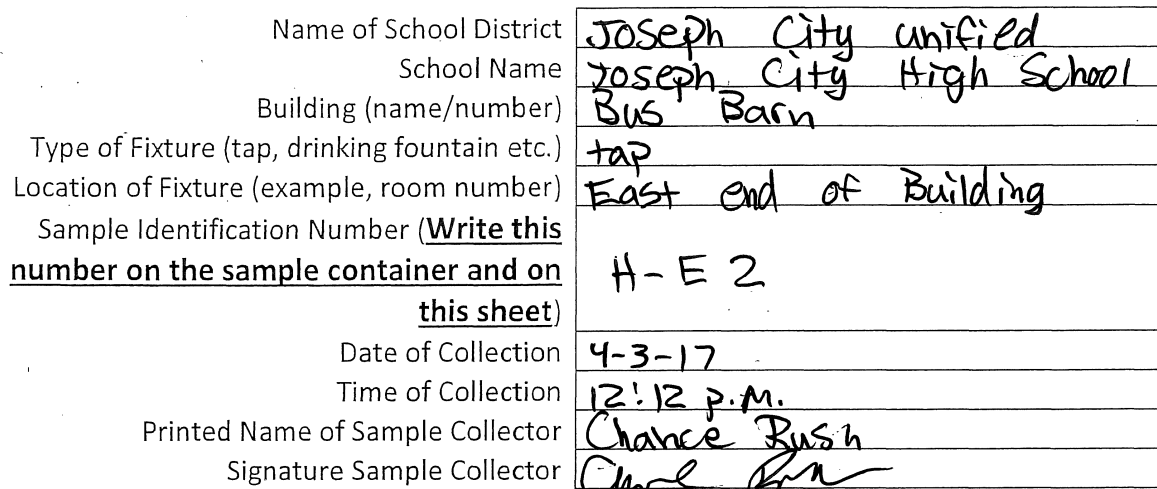 Name of School District Joseph City unified
School Name Joseph City High School
Building (name/number) Bus Barn
Type of Fixture (tap, drinking fountain etc.) tap
Location of Fixture (example, room number) East end of Building
Sample Identification Number (Write this
number on the sample container and on H-E 2
this sheet)
Date of Collection 4-3-17
Time of Collection 12:12 p.m.
Printed Name of Sample Collector Chance Rush
Signature Sample Collector